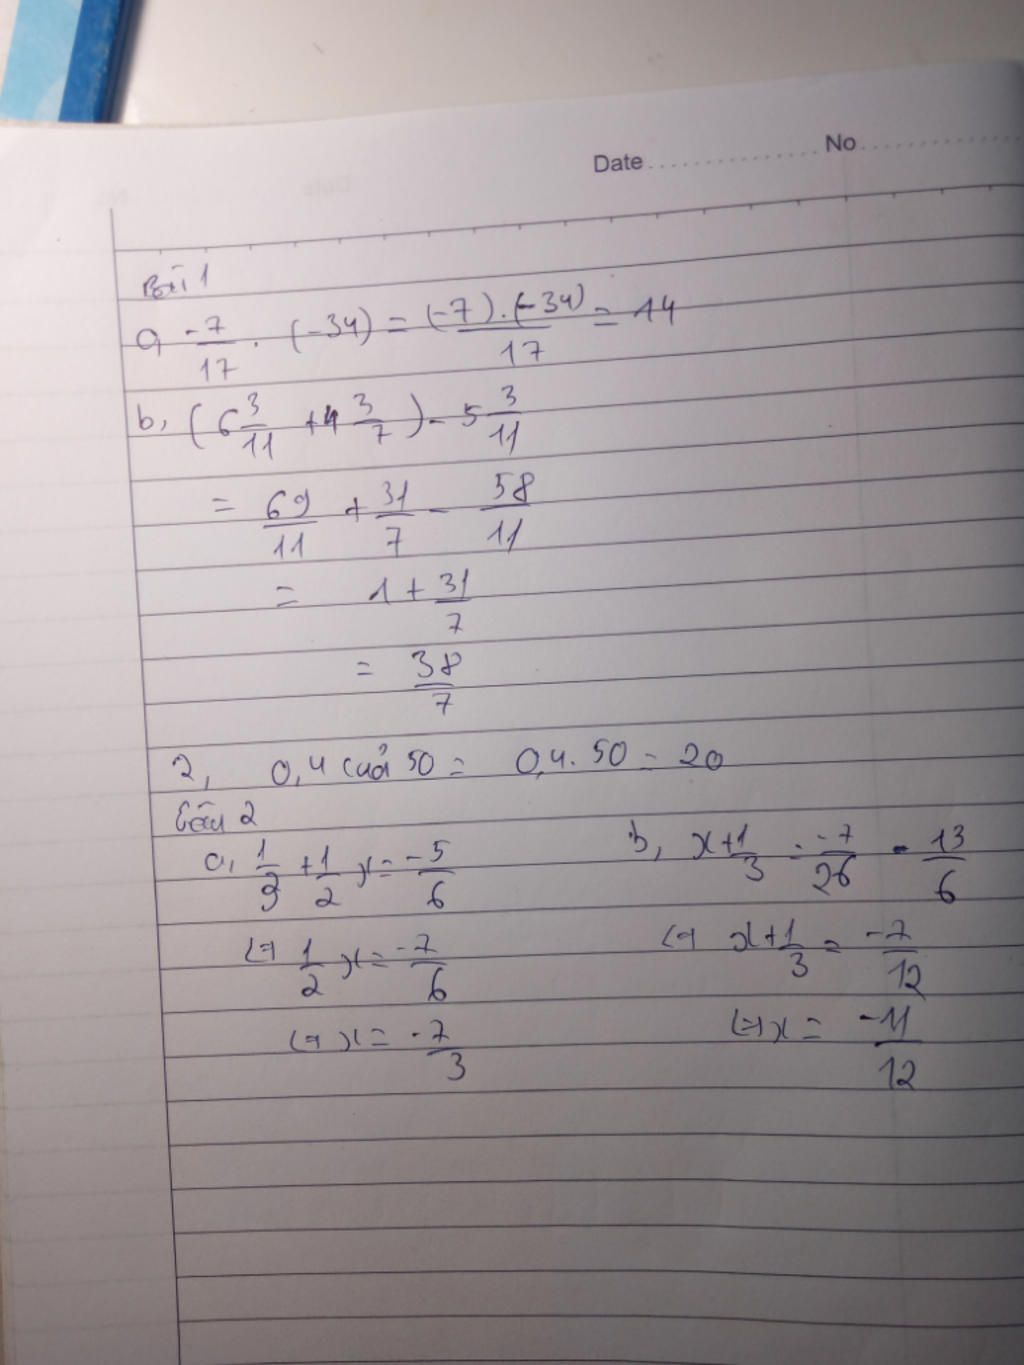 Date No
Bài 1
a, -7/17 . (-34) = (-7).(-34)/17 = 14
b, (6 3/11 + 4 3/7) - 5 3/11
= 69/11 + 31/7 - 58/11
= 1 + 31/7
= 38/7
2, 0,4 của 50 = 0,4. 50 = 20
Câu 2
a, 1/3 + 1/2 x = -5/6
b, x + 1/3 = -7/26 . 13/6
<=> 1/2 x = -7/6
<=> x + 1/3 = -7/12
<=> x = -7/3
<=> x = -11/12